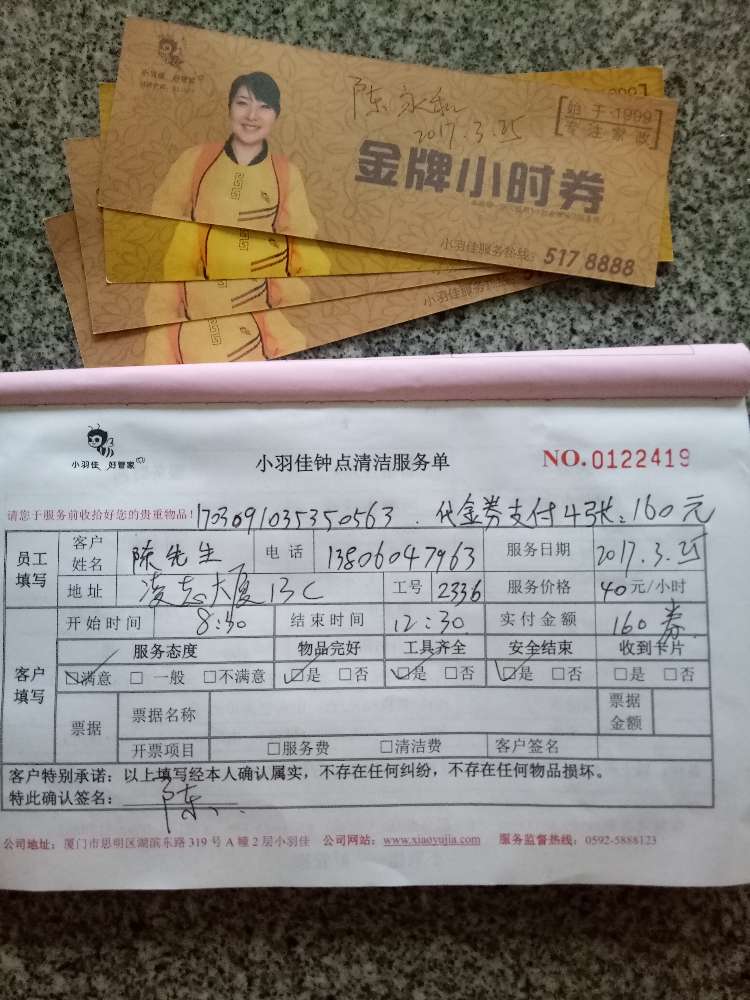 小羽佳 好管家
陈永和
2017.3.25
始于·1999
专注家政
金牌小时券
小羽佳服务热线: 517 8888
小羽佳服务
小羽佳 好管家
小羽佳钟点清洁服务单
NO.0122419
请您于服务前收拾好您的贵重物品! 1703091035350563. 代金券支付4张: 160元
员工填写 客户姓名 陈先生 电话 13806047963 服务日期 2017.3.25
地址 凌志大厦13C 工号 2336 服务价格 40元/小时
客户填写 开始时间 8:30 结束时间 12:30 实付金额 160券
服务态度 物品完好 工具齐全 安全结束 收到卡片
☑满意 □一般 □不满意 ☑是 □否 ☑是 □否 ☑是 □否 □是 □否
票据 票据名称 票据金额
开票项目 □服务费 □清洁费 客户签名
客户特别承诺: 以上填写经本人确认属实,不存在任何纠纷,不存在任何物品损坏。
特此确认签名: 陈
公司地址: 厦门市思明区湖滨东路319号A幢2层小羽佳 公司网站: www.xiaoyujia.com 服务监督热线: 0592-5888123